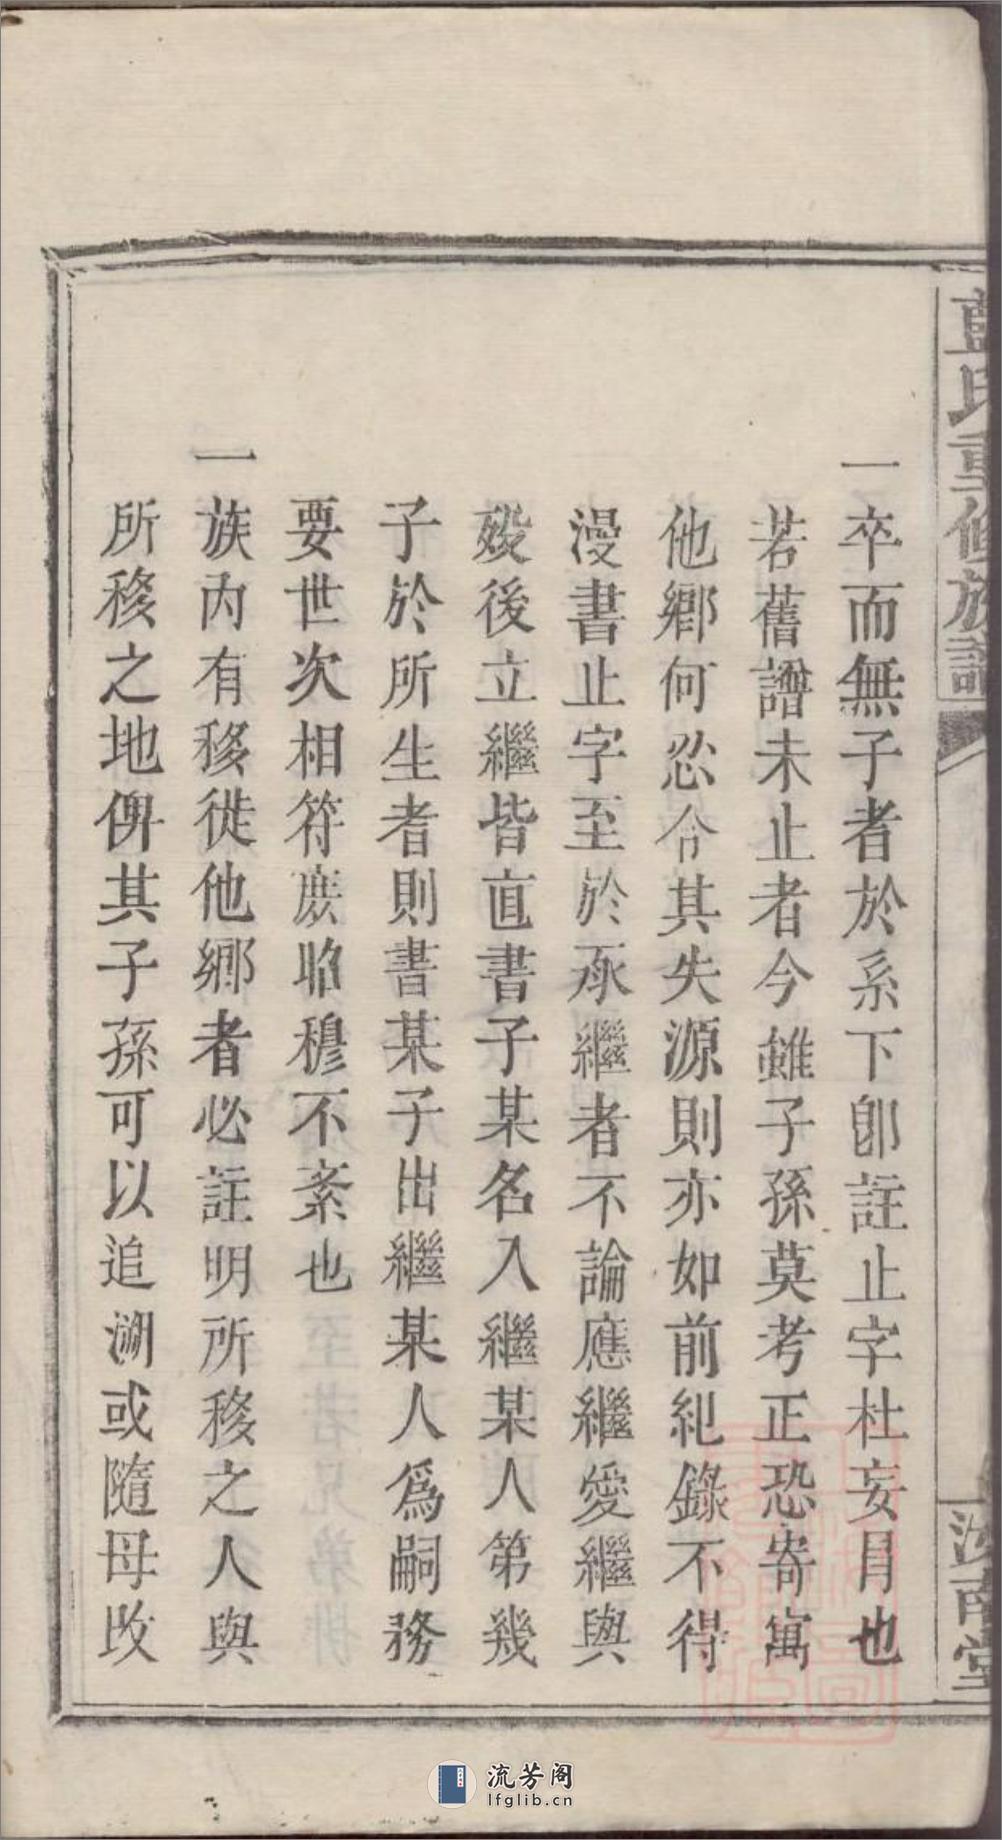 藍氏重修族譜
汝南堂
一卒而無子者於系下卽註止字杜妄冐也
若舊譜未止者今雖子孫莫考正恐寄寓
他鄉何忍令其失源則亦如前紀錄不得
漫書止字至於承繼者不論應繼愛繼與
殁後立繼皆直書子某名入繼某人第幾
子於所生者則書某子出繼某人爲嗣務
要世次相符庶昭穆不紊也
一族內有移徙他鄉者必註明所移之人與
所移之地俾其子孫可以追溯或隨母改
流芳阁
lfglib.cn